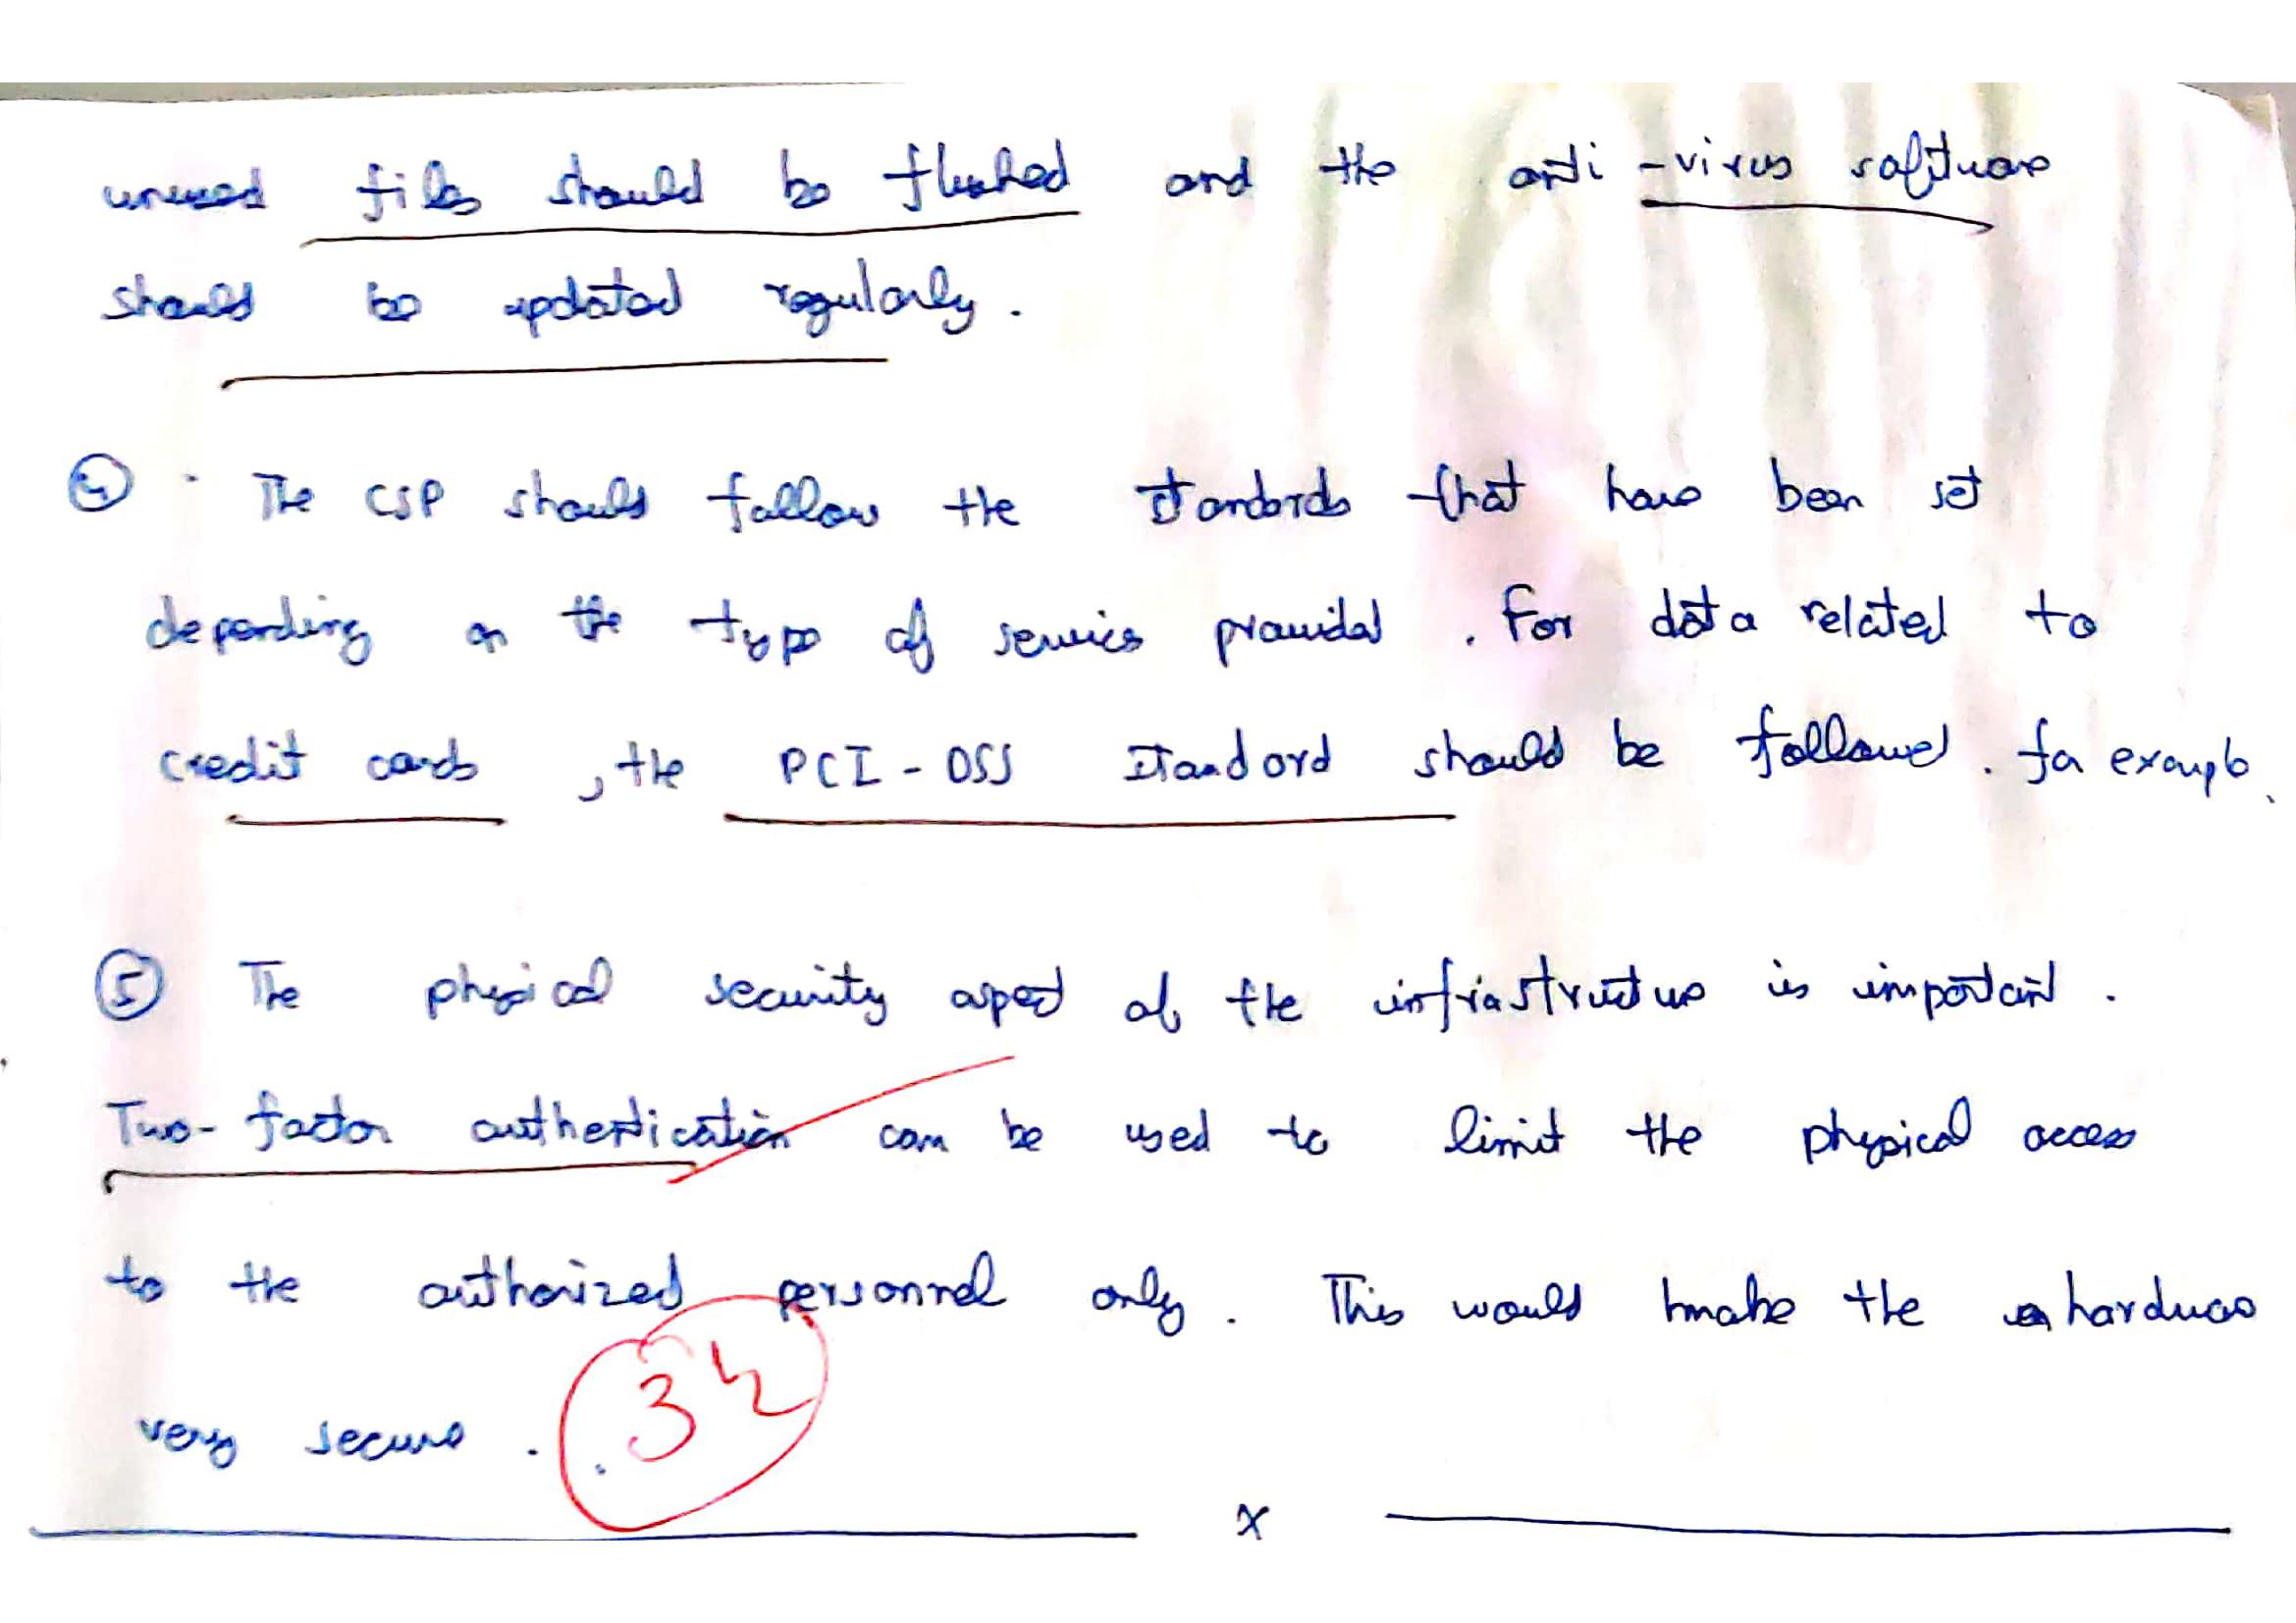 unused files should be flushed and the anti-virus software
should be updated regularly.
④ The CSP should follow the standards that have been set
depending on the type of service provided. For data related to
credit cards, the PCI-DSS standard should be followed. for example.
⑤ The physical security aspect of the infrastructure is important.
Two-factor authentication can be used to limit the physical access
to the authorized personnel only. This would make the hardware
very secure.
x